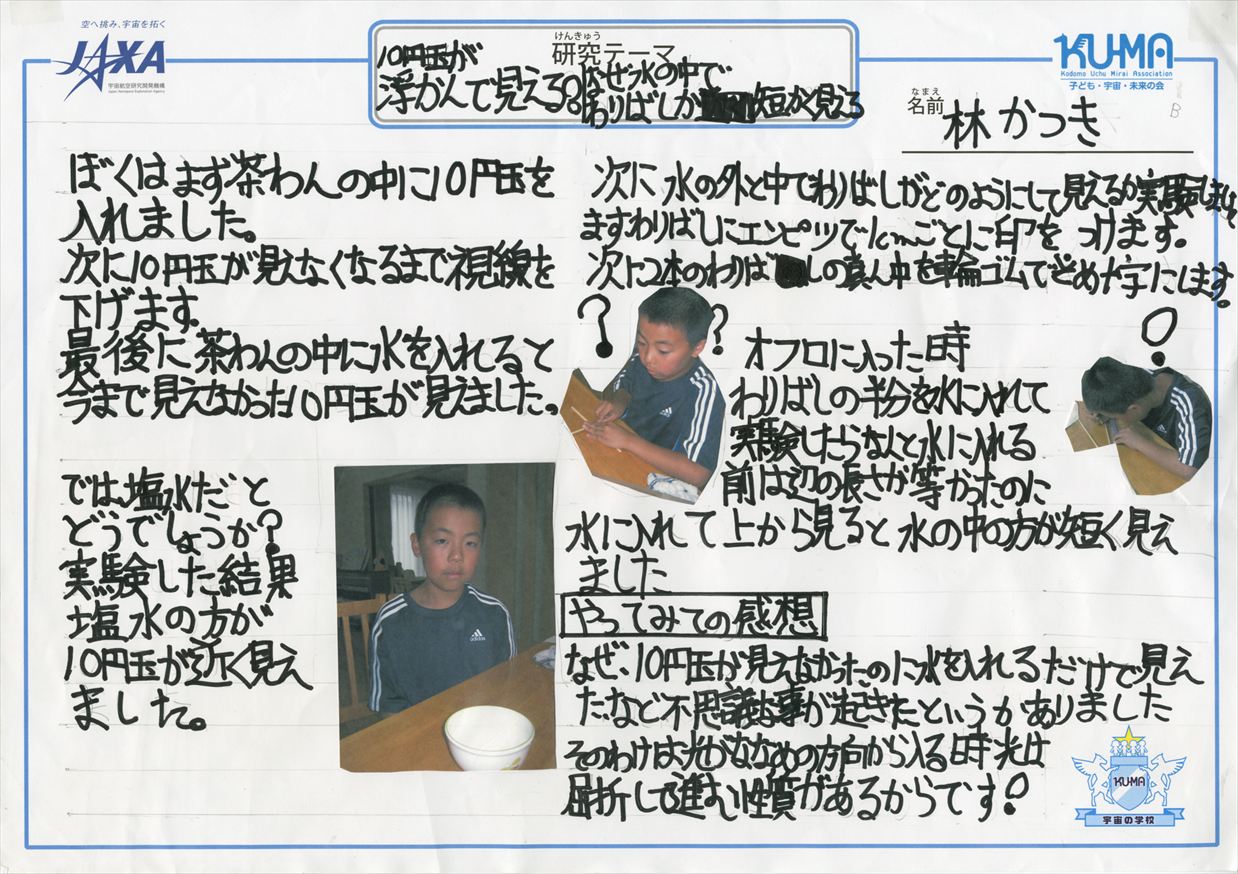 空へ挑み、宇宙を拓く
JAXA
宇宙航空研究開発機構
Japan Aerospace Exploration Agency
けんきゅう
研究テーマ
10円玉が
浮かんで見える。なぜ水の中で
わりばしが短かく見える
KU-MA
Kodomo Uchu Mirai Association
子ども・宇宙・未来の会
なまえ
名前 林かつき
B
ぼくはまず茶わんの中に10円玉を
入れました。
次に10円玉が見えなくなるまで視線を
下げます。
最後に茶わんの中に水を入れると
今まで見えなかった10円玉が見えました。
では、塩水だと
どうでしょうか?
実験した結果
塩水の方が
10円玉が近く見え
ました。
次に水の外と中でわりばしがどのようにして見えるか実験します。
ますわりばしにエンピツで1cmごとに印をつけます。
次に2本のわりばしの真ん中を輪ゴムでとめ十字にします。
? ?
オフロに入った時
わりばしの半分を水に入れて
実験したらなんと水に入れる
前は辺の長さが等かったのに
水に入れて上から見ると水の中の方が短く見え
ました
やってみての感想
なぜ、10円玉が見えなかったのに水を入れるだけで見え
たなど不思議な事が起きたというかありました
そのわけは光がななめの方向から入る時光は
屈折して進む性質があるからです!
adidas
adidas
KU-MA
宇宙の学校